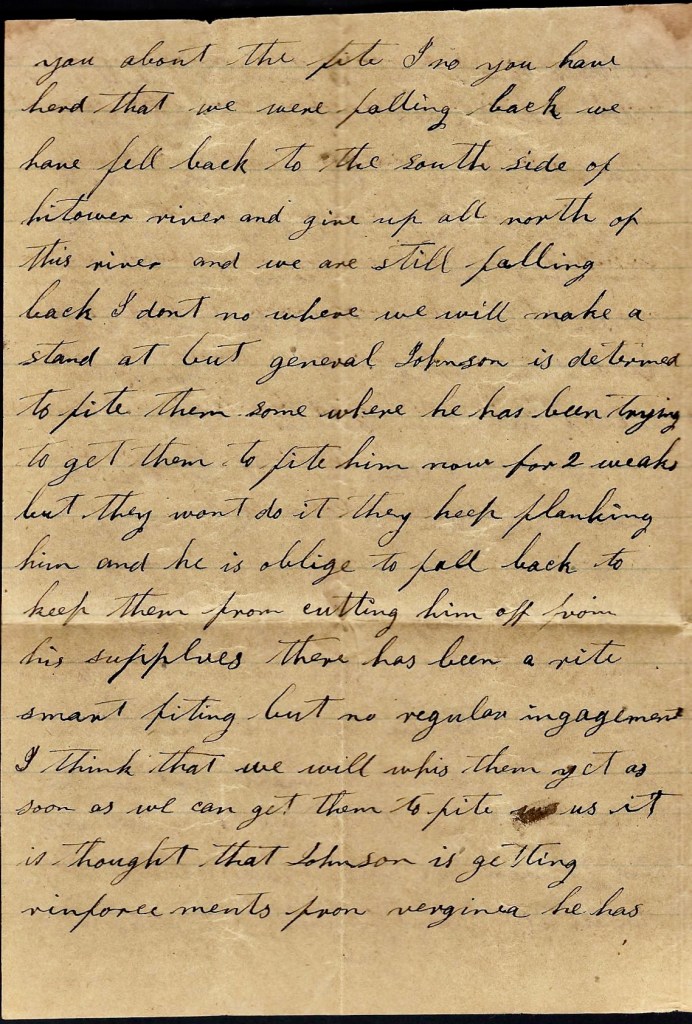 you about the fite I no you have
herd that we were falling back we
have fell back to the south side of
hitower river and give up all north of
this river and we are still falling
back I dont no where we will make a
stand at but general Johnson is determed
to fite them some where he has been trying
to get them to fite him now for 2 weaks
but they wont do it they keep planking
him and he is oblige to fall back to
keep them from cutting him off from
his supplues there has been a rite
smart fiting but no regular ingagement
I think that we will whis them yet as
soon as we can get them to fite us it
is thought that Johnson is getting
rinforce ments fron verginea he has